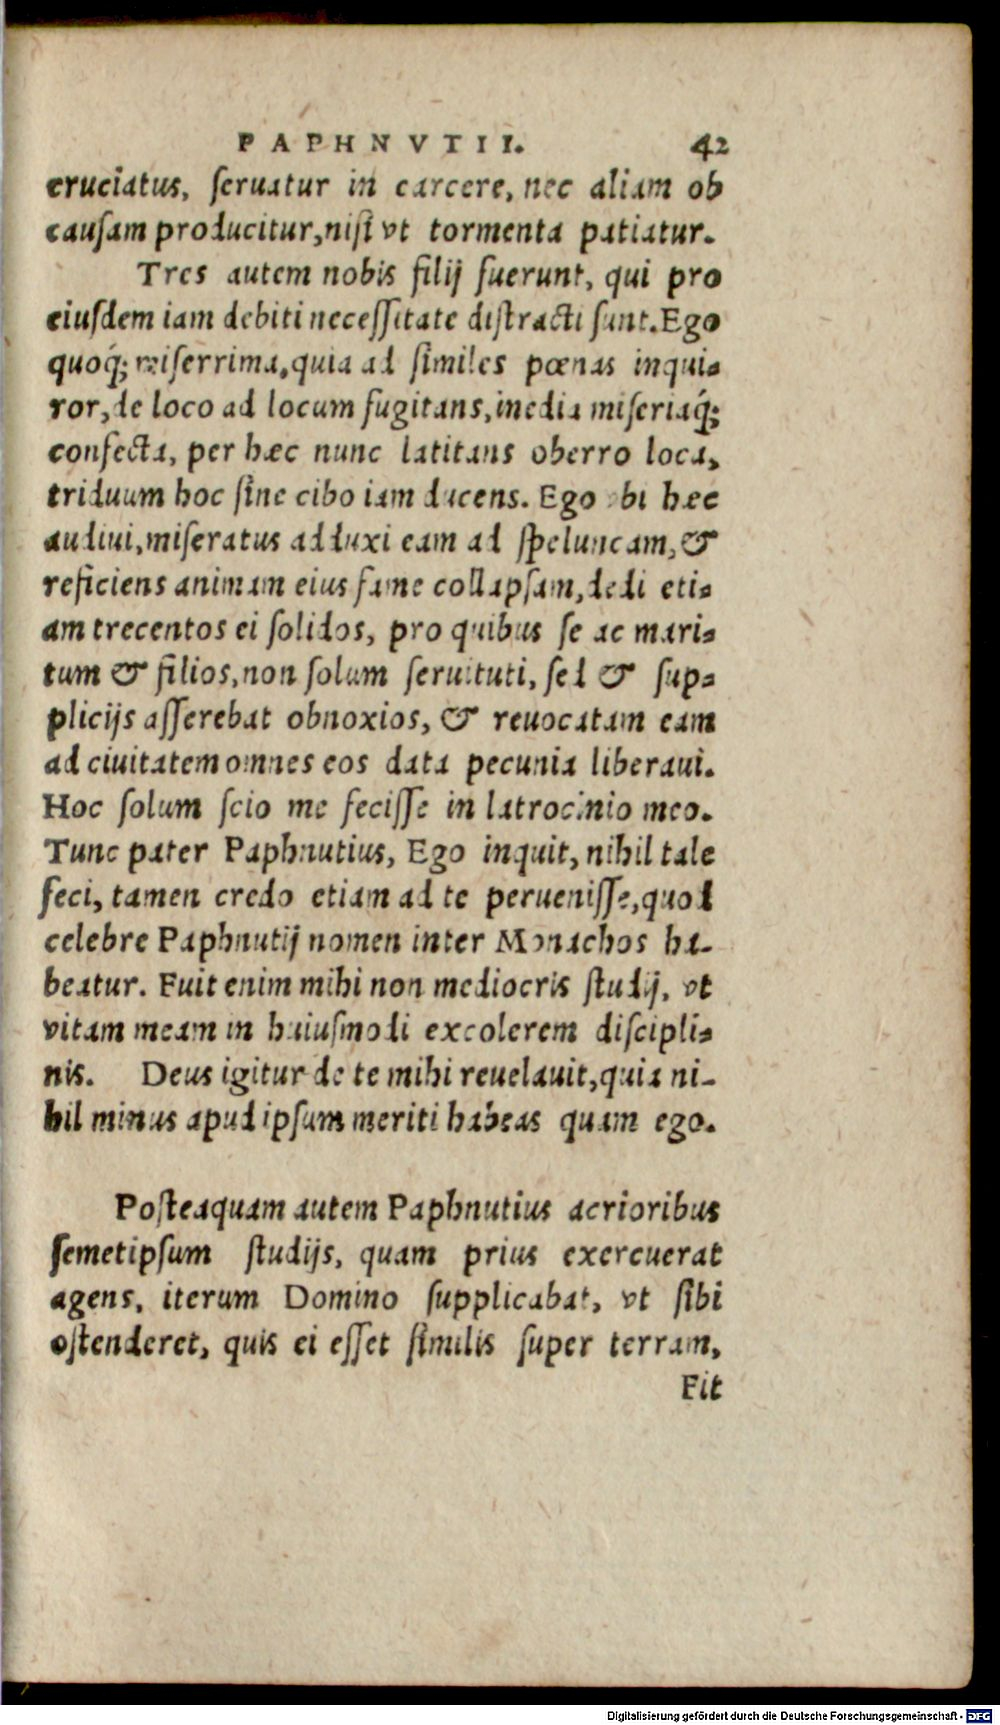 PAPHNVTII. 42
cruciatus, seruatur in carcere, nec aliam ob
causam producitur, nisi vt tormenta patiatur.
Tres autem nobis filij fuerunt, qui pro
eiusdem iam debiti necessitate distracti sunt. Ego
quoq́; miserrima, quia ad similes pœnas inqui-
ror, de loco ad locum fugitans, inedia miseriaq́;
confecta, per hæc nunc latitans oberro loca,
triduum hoc sine cibo iam ducens. Ego vbi hæc
audiui, miseratus adduxi eam ad speluncam, &
reficiens animam eius fame collapsam, dedi eti-
am trecentos ei solidos, pro quibus se ac mari-
tum & filios, non solum seruituti, sed & sup-
plicijs asserebat obnoxios, & reuocatam eam
ad ciuitatem omnes eos data pecunia liberaui.
Hoc solum scio me fecisse in latrocinio meo.
Tunc pater Paphnutius, Ego inquit, nihil tale
feci, tamen credo etiam ad te peruenisse, quod
celebre Paphnutij nomen inter Monachos ha-
beatur. Fuit enim mihi non mediocris studij, vt
vitam meam in huiusmodi excolerem discipli-
nis. Deus igitur de te mihi reuelauit, quia ni-
hil minus apud ipsum meriti habeas quam ego.
Posteaquam autem Paphnutius acrioribus
semetipsum studijs, quam prius exercuerat
agens, iterum Domino supplicabat, vt sibi
ostenderet, quis ei esset similis super terram,
Fit
Digitalisierung gefördert durch die Deutsche Forschungsgemeinschaft - DFG